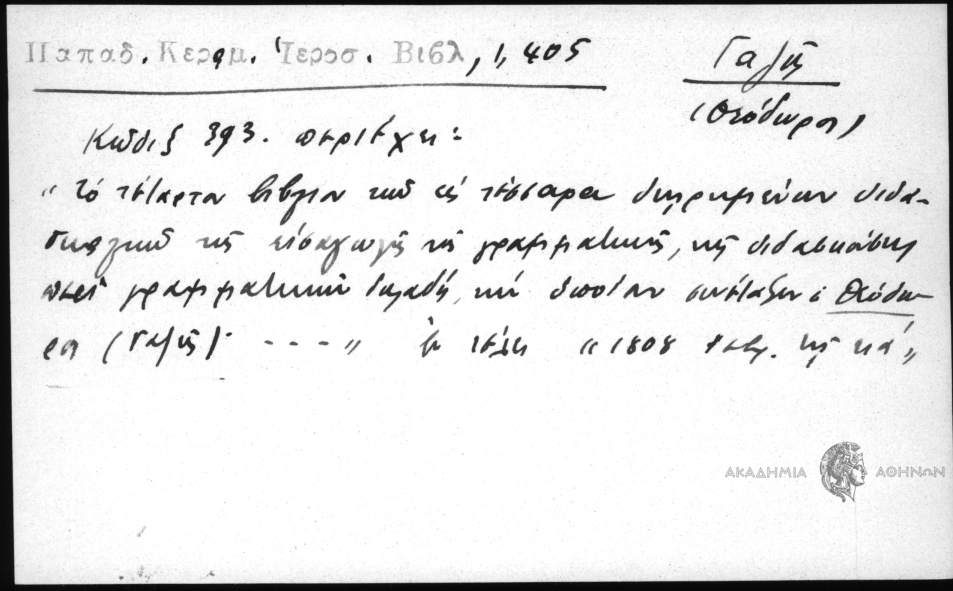 Παπαδ. Κεραμ. Ἱεροσ. Βιβλ, 1, 405
Γαζῆς
(Θεόδωρος)
Κῶδιξ 393. περιέχει:
"Τό τέταρτον βιβλίον τοῦ εἰς τέσσαρα διῃρημένων διδα-
τῆς εἰσαγωγῆς τῆς γραμματικῆς, τῆς διδασκούσης
περί γραμματικῶν δηλαδή, τήν ὁποίαν συνέταξεν ὁ Θεόδω-
ρος (Γαζῆς) - - - " ἐν τέλει "1808 τῆς κά"
ΑΚΑΔΗΜΙΑ ΑΘΗΝΩΝ